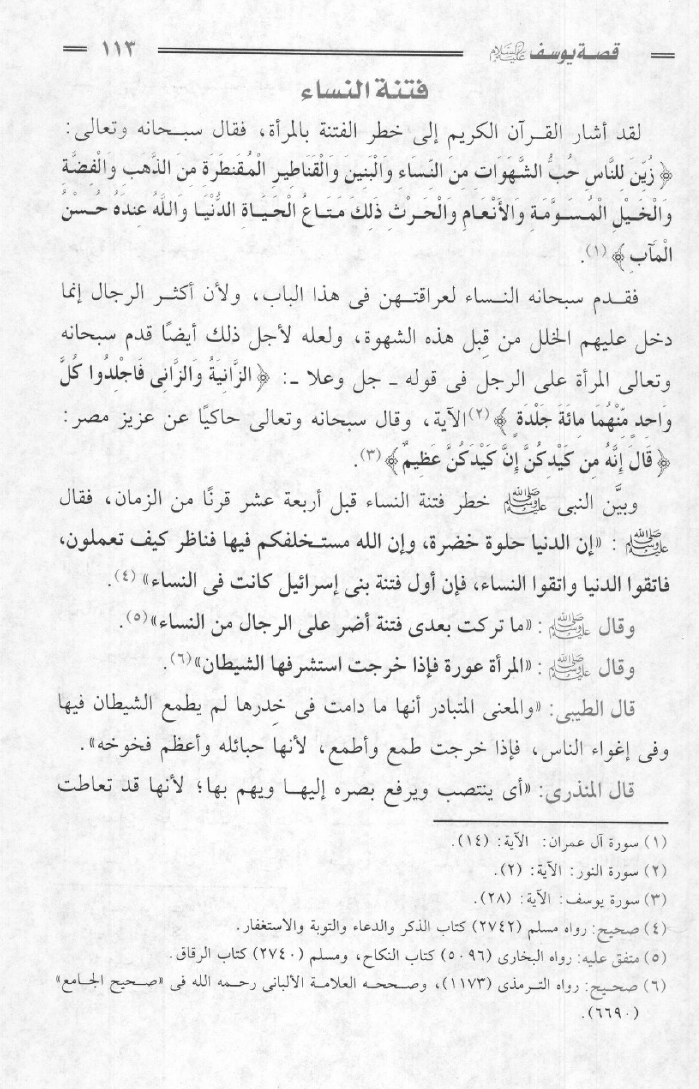 قصة يوسف عليه السلام ١١٣
فتنة النساء
لقد أشار القرآن الكريم إلى خطر الفتنة بالمرأة، فقال سبحانه وتعالى:
﴿ زُيِّنَ لِلنَّاسِ حُبُّ الشَّهَوَاتِ مِنَ النِّسَاءِ وَالْبَنِينَ وَالْقَنَاطِيرِ الْمُقَنطَرَةِ مِنَ الذَّهَبِ وَالْفِضَّةِ
وَالْخَيْلِ الْمُسَوَّمَةِ وَالأَنْعَامِ وَالْحَرْثِ ذَلِكَ مَتَاعُ الْحَيَاةِ الدُّنْيَا وَاللَّهُ عِندَهُ حُسْنُ
الْمَآبِ ﴾ (١).
فقدم سبحانه النساء لعراقتهن فى هذا الباب، ولأن أكثر الرجال إنما
دخل عليهم الخلل من قِبل هذه الشهوة، ولعله لأجل ذلك أيضًا قدم سبحانه
وتعالى المرأة على الرجل فى قوله ـ جل وعلا ـ: ﴿ الزَّانِيَةُ وَالزَّانِى فَاجْلِدُوا كُلَّ
وَاحِدٍ مِّنْهُمَا مِائَةَ جَلْدَةٍ ﴾ (٢) الآية، وقال سبحانه وتعالى حاكيًا عن عزيز مصر:
﴿ قَالَ إِنَّهُ مِن كَيْدِكُنَّ إِنَّ كَيْدَكُنَّ عَظِيمٌ ﴾ (٣).
وبيَّن النبى ﷺ خطر فتنة النساء قبل أربعة عشر قرنًا من الزمان، فقال
ﷺ : «إن الدنيا حلوة خضرة، وإن الله مستخلفكم فيها فناظر كيف تعملون،
فاتقوا الدنيا واتقوا النساء، فإن أول فتنة بنى إسرائيل كانت فى النساء» (٤).
وقال ﷺ : «ما تركت بعدى فتنة أضر على الرجال من النساء» (٥).
وقال ﷺ : «المرأة عورة فإذا خرجت استشرفها الشيطان» (٦).
قال الطيبى: «والمعنى المتبادر أنها ما دامت فى خِدرها لم يطمع الشيطان فيها
وفى إغواء الناس، فإذا خرجت طمع وأطمع، لأنها حبائله وأعظم فخوخه».
قال المنذرى: «أى ينتصب ويرفع بصره إليها ويهم بها؛ لأنها قد تعاطت
(١) سورة آل عمران: الآية: (١٤).
(٢) سورة النور: الآية: (٢).
(٣) سورة يوسف: الآية: (٢٨).
(٤) صحيح: رواه مسلم (٢٧٤٢) كتاب الذكر والدعاء والتوبة والاستغفار.
(٥) متفق عليه: رواه البخارى (٥٠٩٦) كتاب النكاح، ومسلم (٢٧٤٠) كتاب الرقاق.
(٦) صحيح: رواه الترمذى (١١٧٣)، وصححه العلامة الألبانى رحمه الله فى «صحيح الجامع»
(٦٦٩٠).